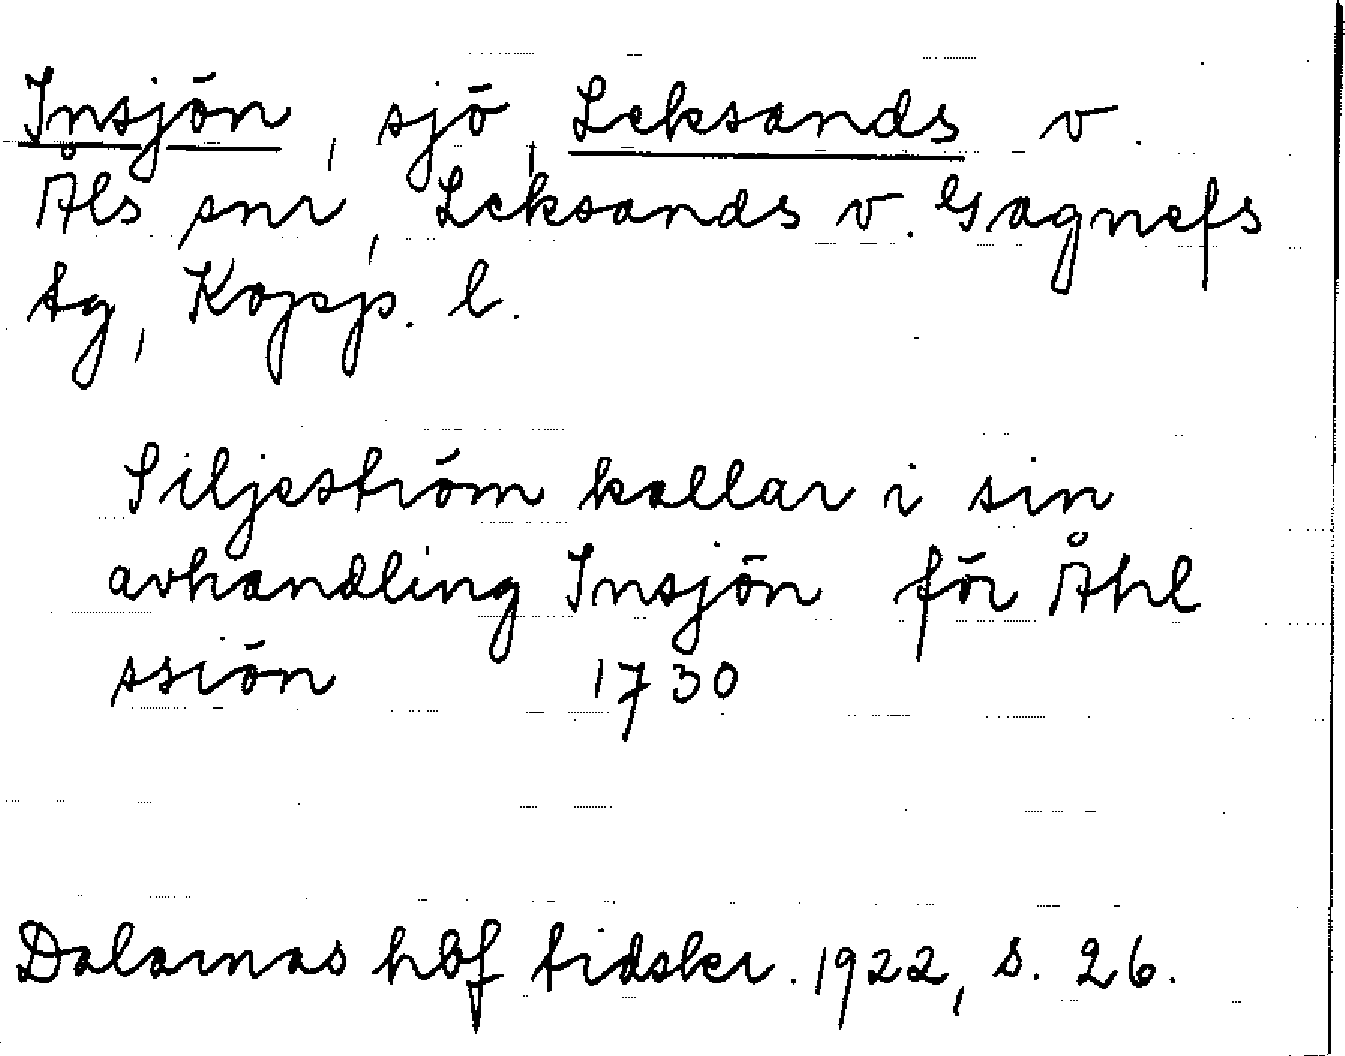 Insjön, sjö, Leksands v.
Åls snr, Leksands v. Gagnefs
tg, Kopp. l.
Siljeström kallar i sin
avhandling Insjön för Åhl
ssiön 1730
Dalarnas hbf tidskr. 1922, s. 26.